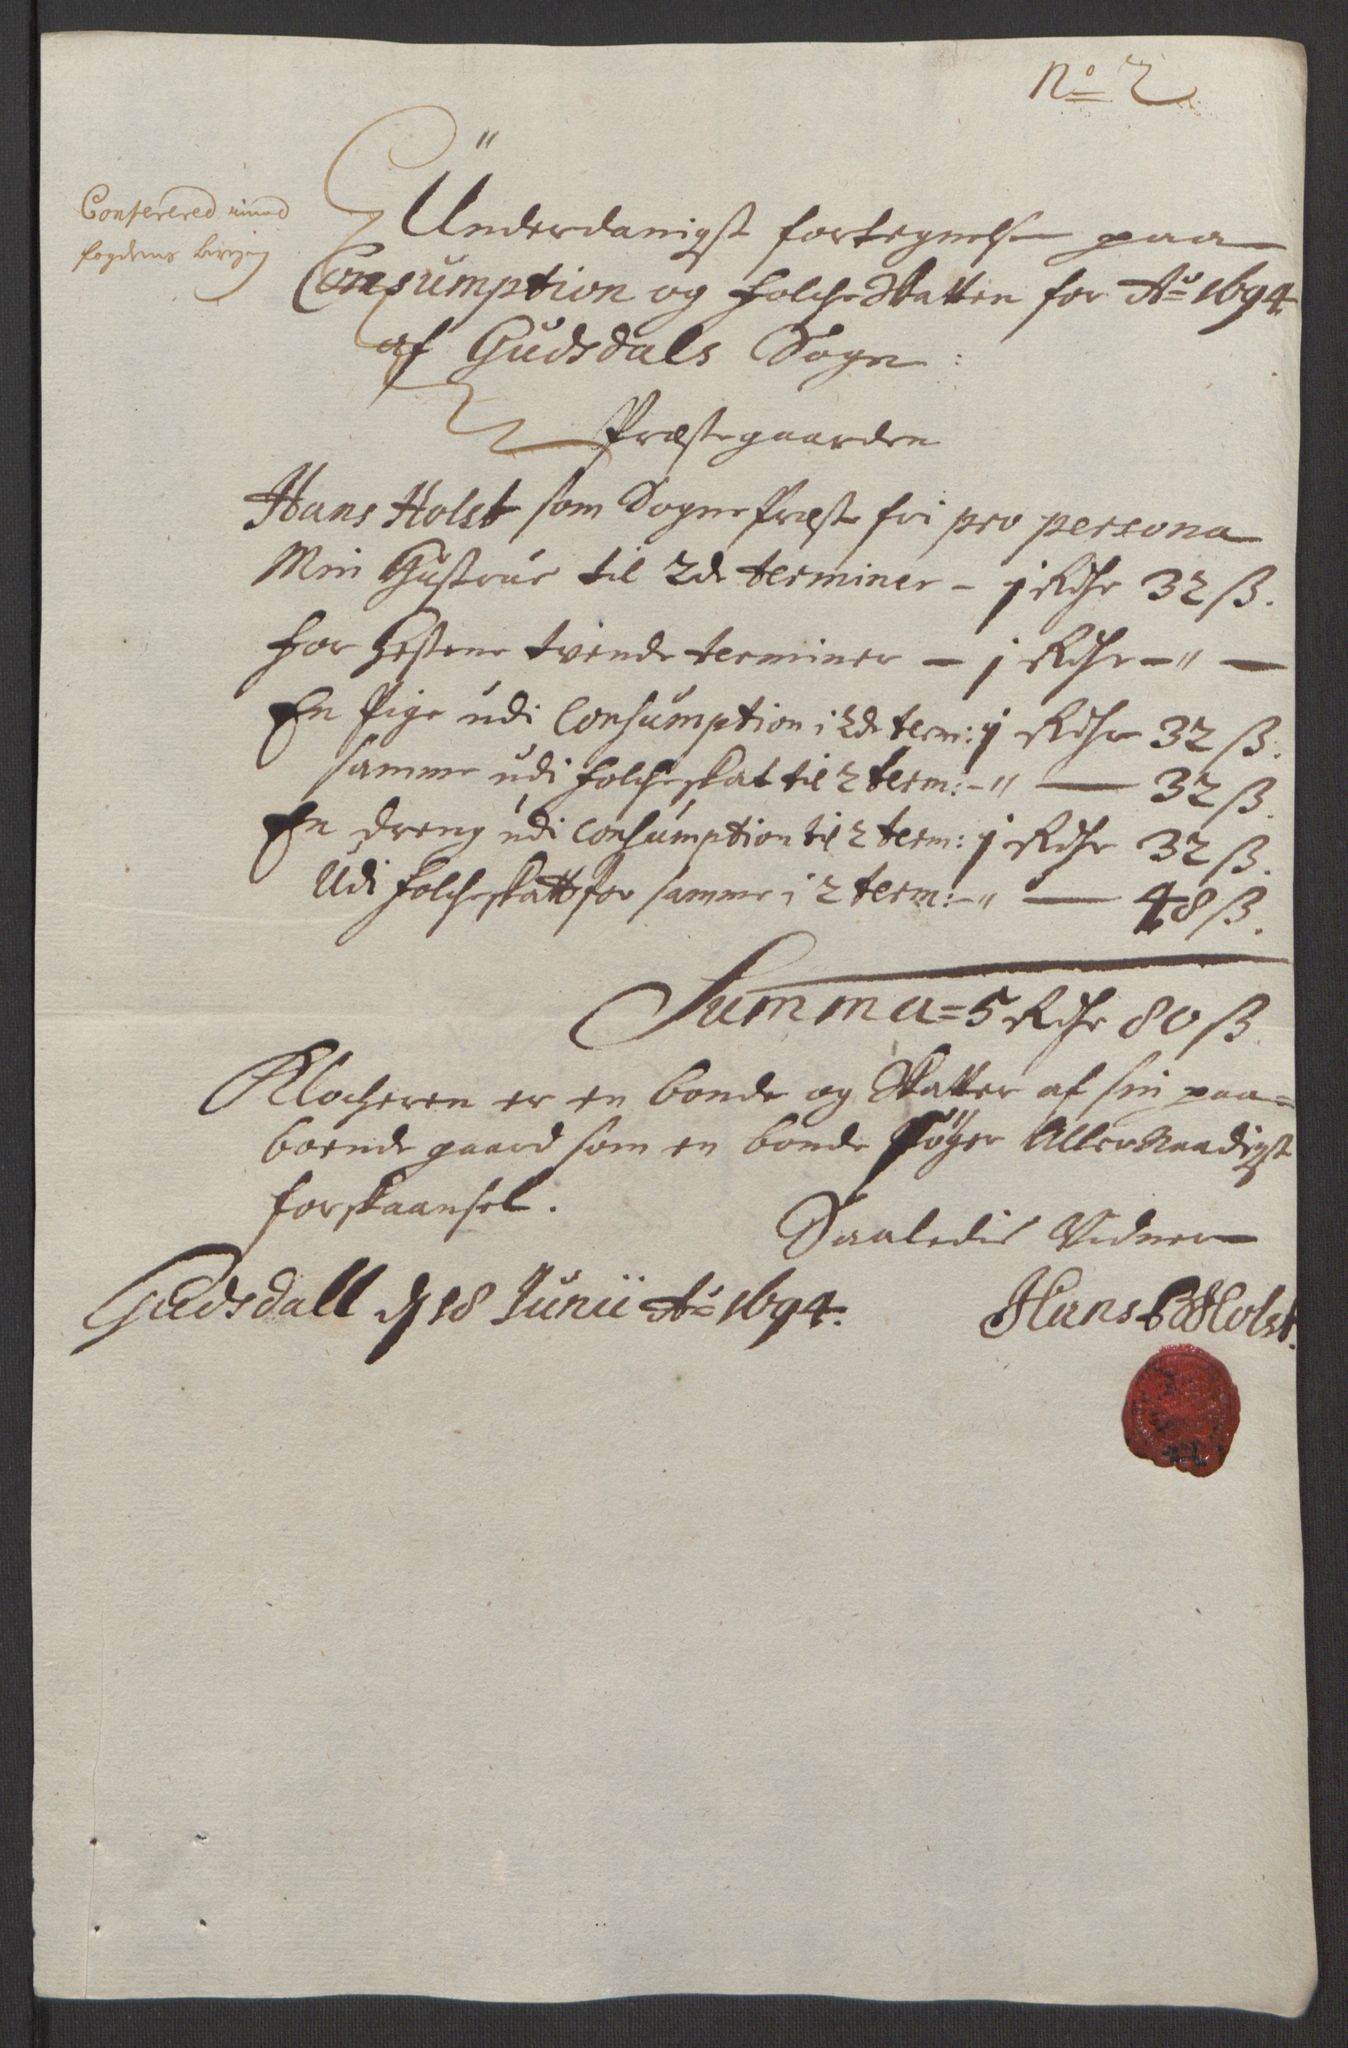 No 2
Conferered imod
fogdens
Underdanigst fortegnelse paa
Consumption og folche Skatten for Ao 1694.
af Gudsdals Sogn:
Præstegaarden
Hans Holst som Sogne Præst fri pro persona
Min Hustrue til 2de terminer - j Rdhr 32 ß.
for Hestene tvende terminer - j Rdhr - " -
En Pige udi Consumption i 2de term: j Rdhr 32 ß.
samme udi folcheskat til 2 term: - " - 32 ß.
En dreng udi Consumption til 2 term: j Rdhr 32 ß.
Udi folcheskatt for samme i 2 term: - " - 48 ß.
Summa = 5 Rdhr 80 ß
Klocheren er en bonde og Skatter af sin paa=
boende gaard som en bonde Søger Allernaadigst
forskaansel.
Saaledis Vidner
Gudsdall d 18 Junii Ao 1694.
Hans Holst.